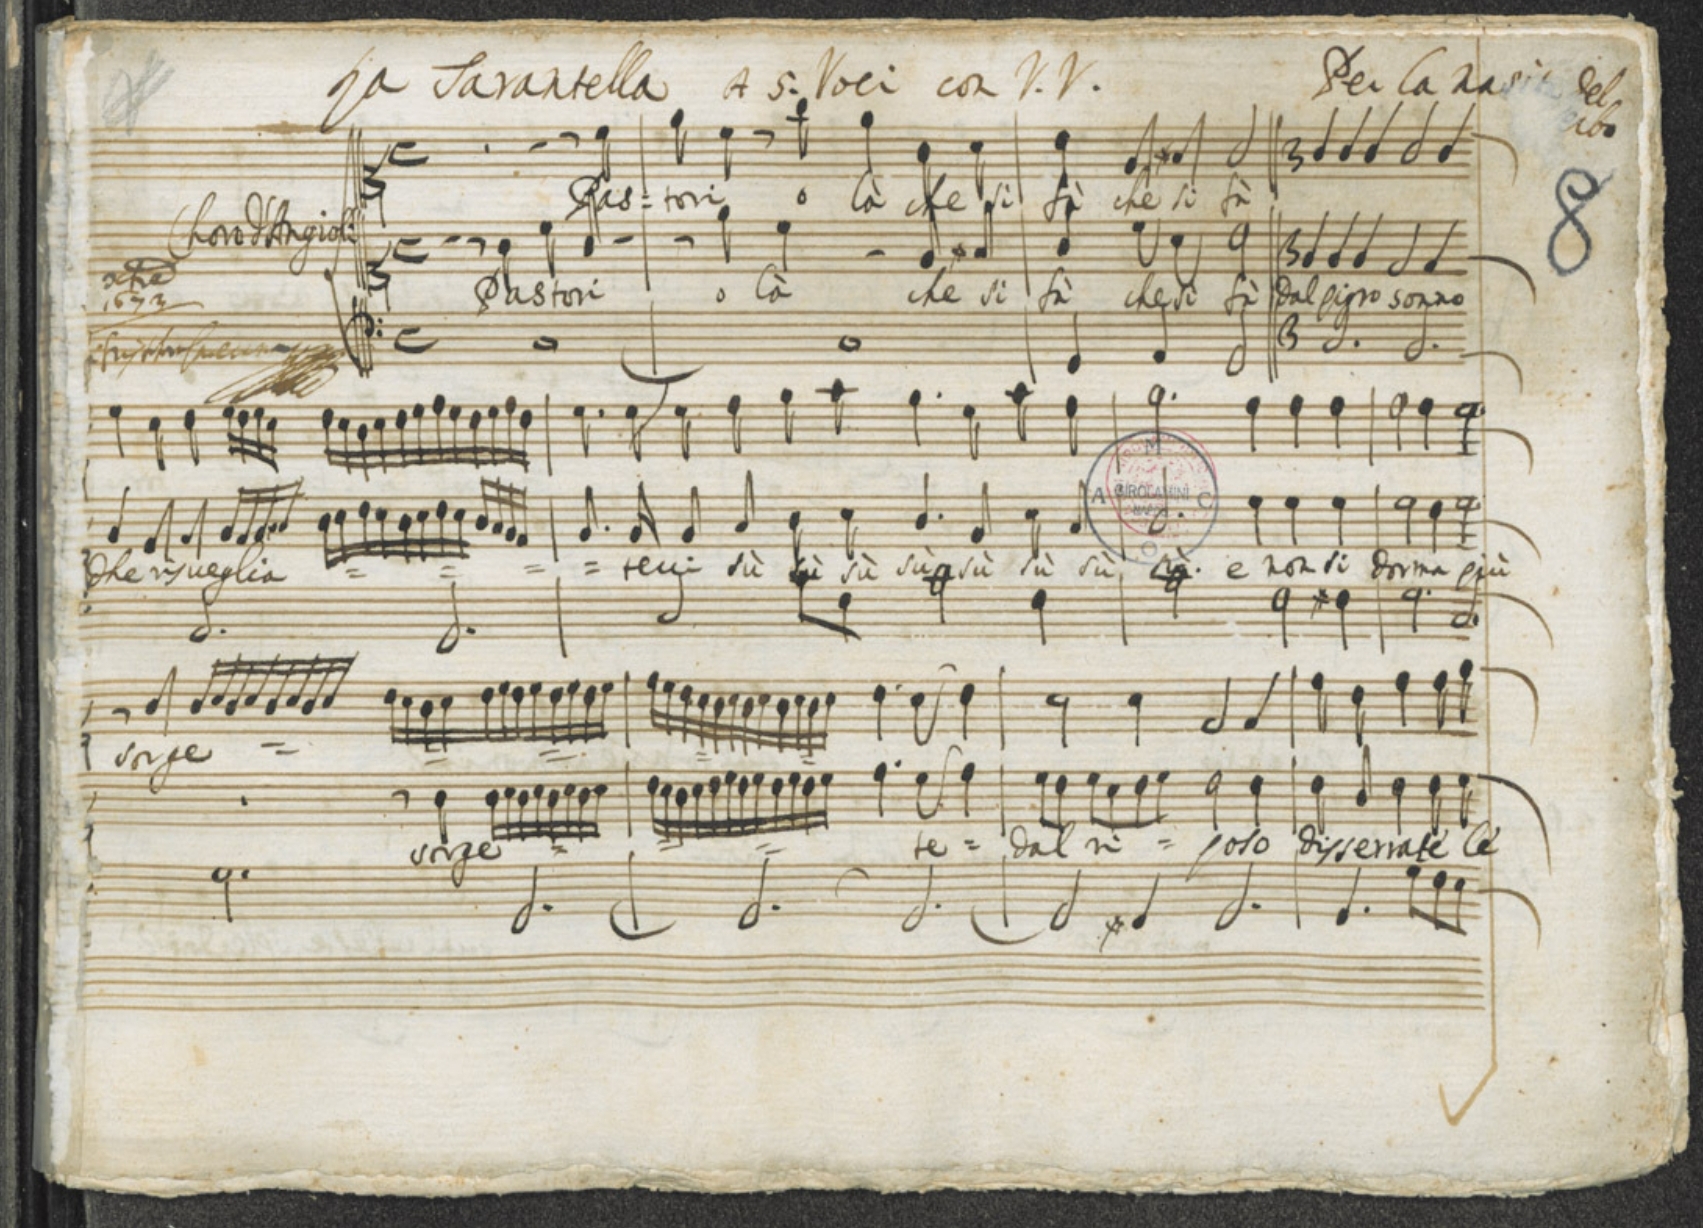 La Tarantella A 5. Voci con V.V. Per la nasci del
8
Pas=tori o là che si fà che si fà
Choro d'Angioli
Xbre
1673
Pastori o là che si fà che si fà dal pigro sonno
GIROLAMINI
Dhe risueglia = = = = teui sù sù sù sù sù sù sù sù. e non si dorma più
sorge = = = = =
sorge = = = te = dal ri = poso disserrate le